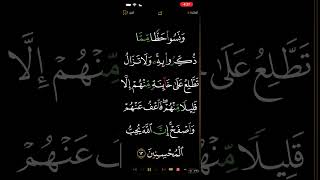 4:37
وَنَسُوا۟ حَظًّۭا مِّمَّا
ذُكِّرُوا۟ بِهِۦ ۚ وَلَا تَزَالُ
تَطَّلِعُ عَلَىٰ خَآئِنَةٍۢ مِّنْهُمْ إِلَّا
قَلِيلًۭا مِّنْهُمْ ۖ فَٱعْفُ عَنْهُمْ
وَٱصْفَحْ ۚ إِنَّ ٱللَّهَ يُحِبُّ
ٱلْمُحْسِنِينَ ١٣